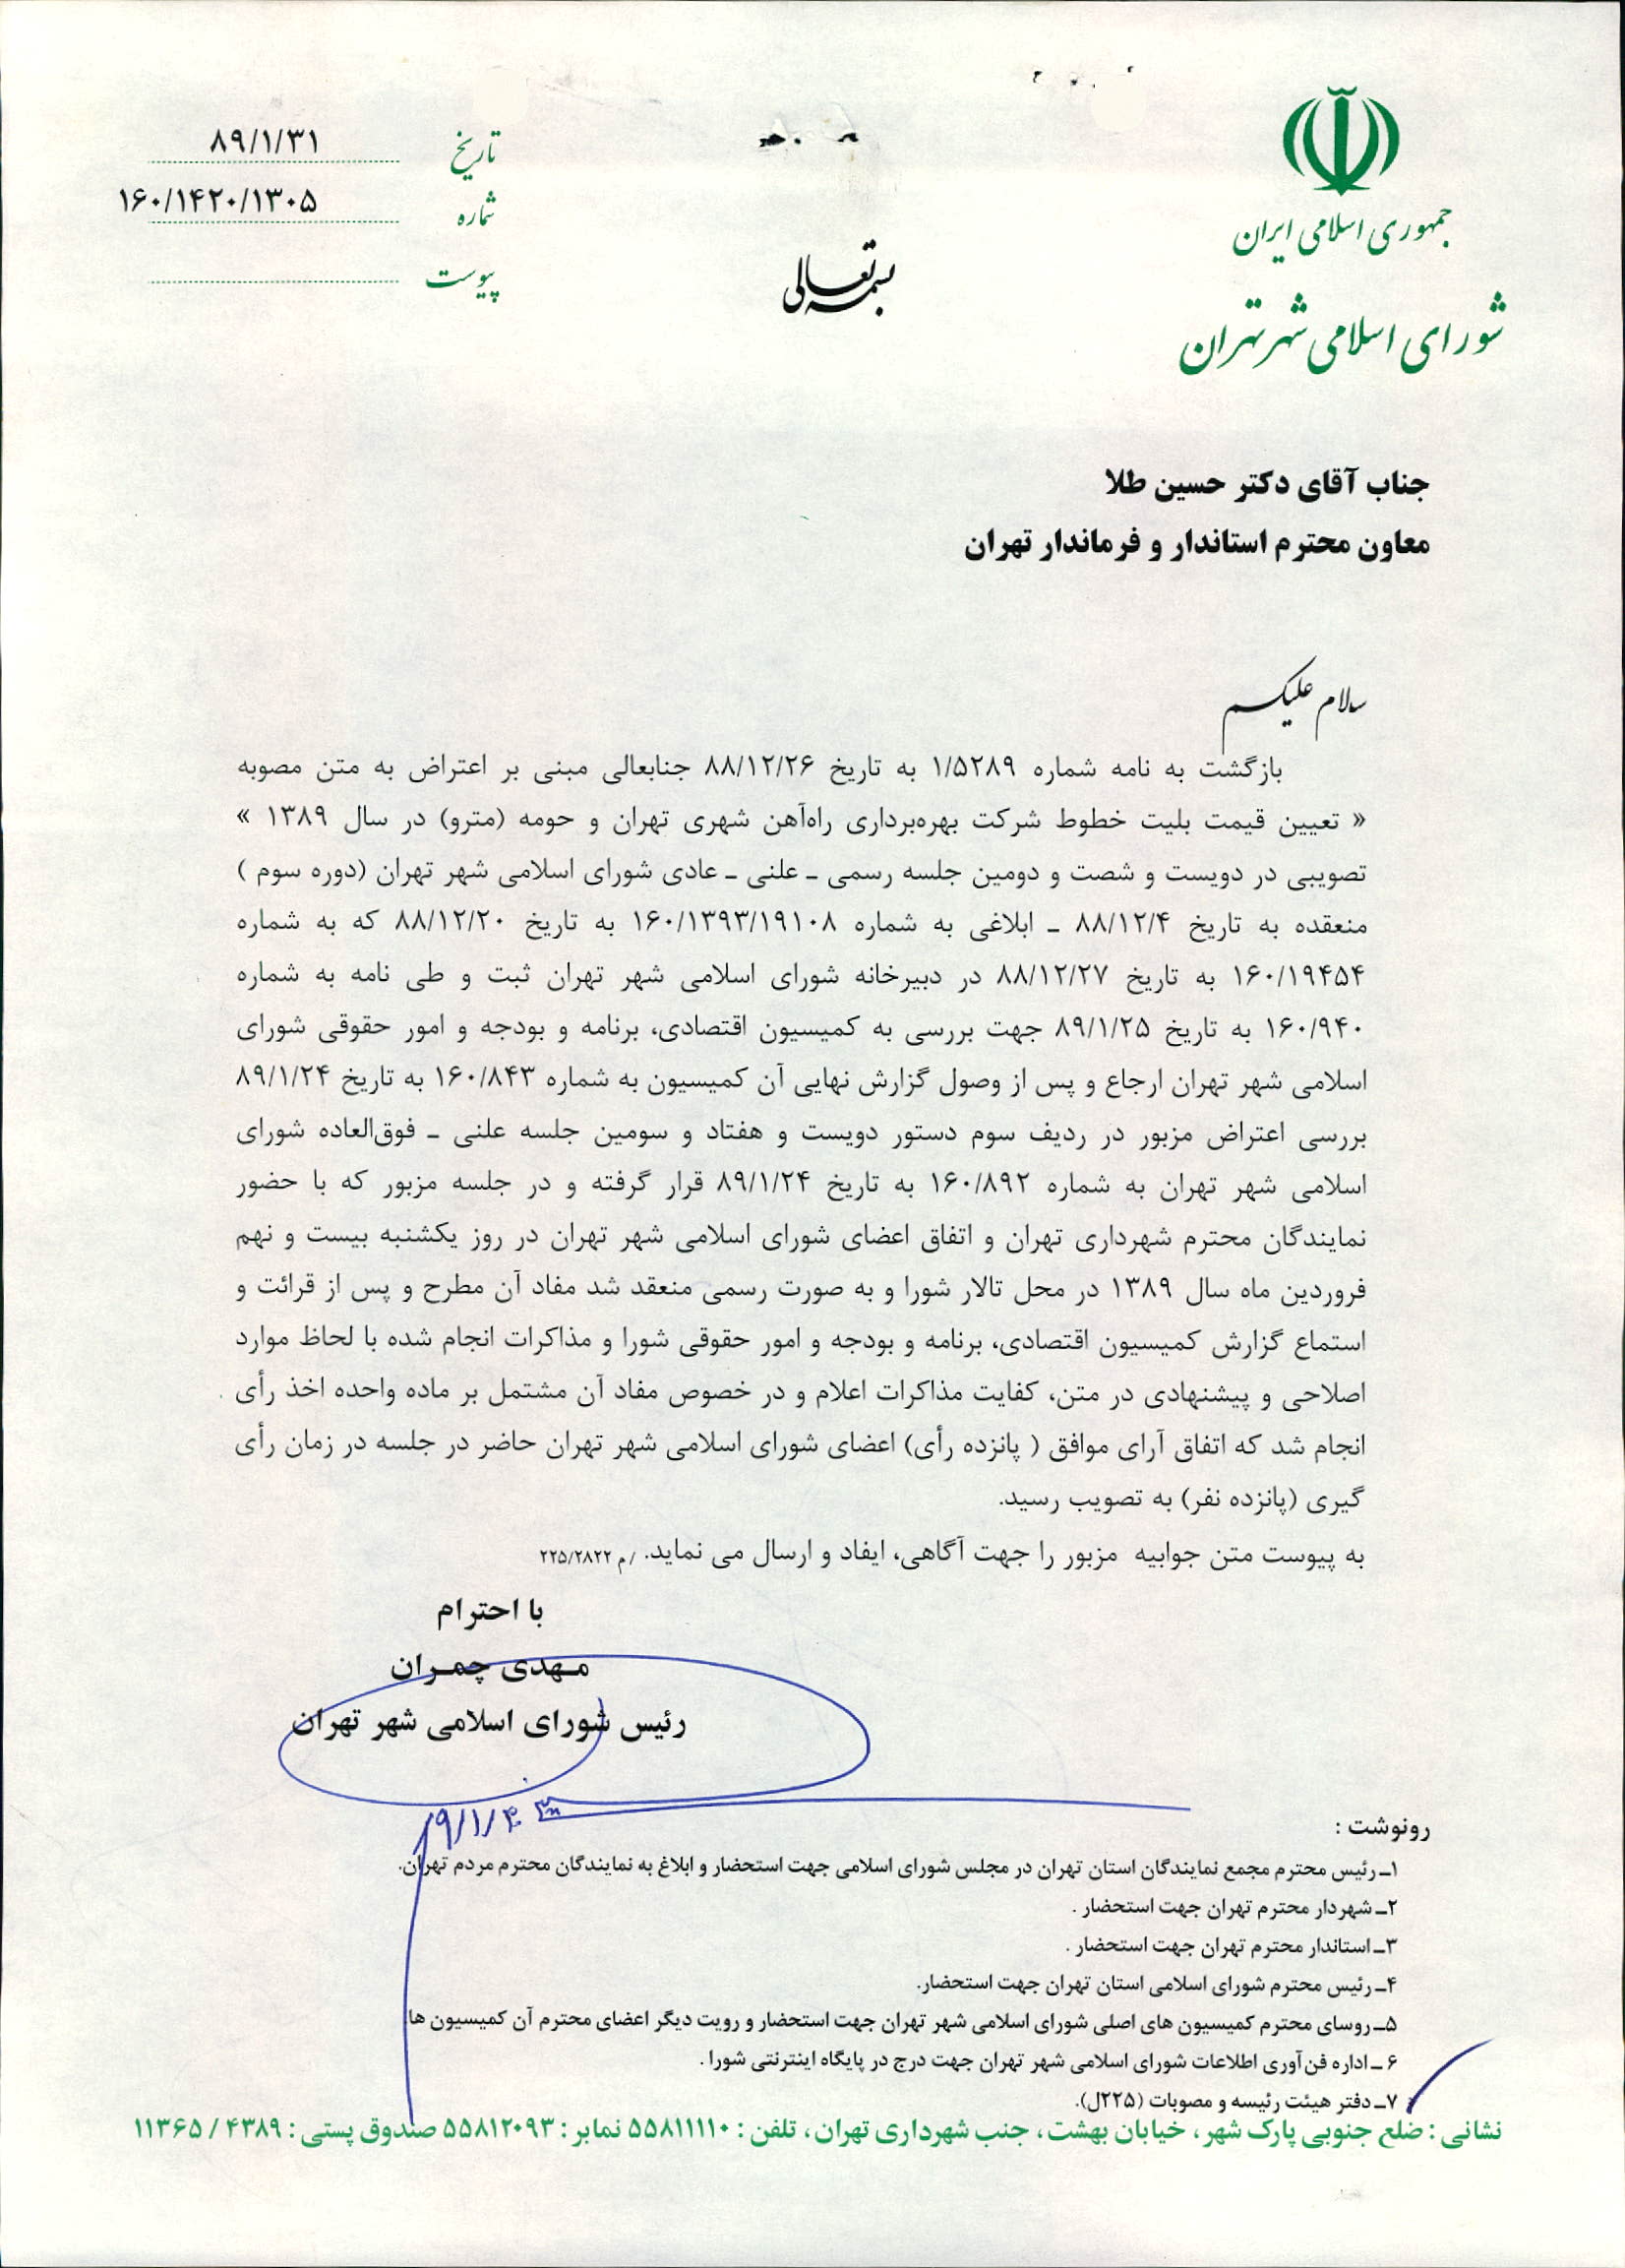 جمهوری اسلامی ایران
شورای اسلامی شهر تهران
بسمه تعالی
تاریخ ۸۹/۱/۳۱
شماره ۱۶۰/۱۴۲۰/۱۳۰۵
پیوست
جناب آقای دکتر حسین طلا
معاون محترم استاندار و فرماندار تهران
سلام علیکم
بازگشت به نامه شماره ۱/۵۲۸۹ به تاریخ ۸۸/۱۲/۲۶ جنابعالی مبنی بر اعتراض به متن مصوبه
« تعیین قیمت بلیت خطوط شرکت بهره‌برداری راه‌آهن شهری تهران و حومه (مترو) در سال ۱۳۸۹ »
تصویبی در دویست و شصت و دومین جلسه رسمی ـ علنی ـ عادی شورای اسلامی شهر تهران (دوره سوم )
منعقده به تاریخ ۸۸/۱۲/۴ ـ ابلاغی به شماره ۱۶۰/۱۳۹۳/۱۹۱۰۸ به تاریخ ۸۸/۱۲/۲۰ که به شماره
۱۶۰/۱۹۴۵۴ به تاریخ ۸۸/۱۲/۲۷ در دبیرخانه شورای اسلامی شهر تهران ثبت و طی نامه به شماره
۱۶۰/۹۴۰ به تاریخ ۸۹/۱/۲۵ جهت بررسی به کمیسیون اقتصادی، برنامه و بودجه و امور حقوقی شورای
اسلامی شهر تهران ارجاع و پس از وصول گزارش نهایی آن کمیسیون به شماره ۱۶۰/۸۴۳ به تاریخ ۸۹/۱/۲۴
بررسی اعتراض مزبور در ردیف سوم دستور دویست و هفتاد و سومین جلسه علنی ـ فوق‌العاده شورای
اسلامی شهر تهران به شماره ۱۶۰/۸۹۲ به تاریخ ۸۹/۱/۲۴ قرار گرفته و در جلسه مزبور که با حضور
نمایندگان محترم شهرداری تهران و اتفاق اعضای شورای اسلامی شهر تهران در روز یکشنبه بیست و نهم
فروردین ماه سال ۱۳۸۹ در محل تالار شورا و به صورت رسمی منعقد شد مفاد آن مطرح و پس از قرائت و
استماع گزارش کمیسیون اقتصادی، برنامه و بودجه و امور حقوقی شورا و مذاکرات انجام شده با لحاظ موارد
اصلاحی و پیشنهادی در متن، کفایت مذاکرات اعلام و در خصوص مفاد آن مشتمل بر ماده واحده اخذ رأی
انجام شد که اتفاق آرای موافق ( پانزده رأی) اعضای شورای اسلامی شهر تهران حاضر در جلسه در زمان رأی
گیری (پانزده نفر) به تصویب رسید.
به پیوست متن جوابیه مزبور را جهت آگاهی، ایفاد و ارسال می نماید. /م ۲۲۵/۲۸۲۲
با احترام
مهدی چمران
رئیس شورای اسلامی شهر تهران
رونوشت :
۱ـ رئیس محترم مجمع نمایندگان استان تهران در مجلس شورای اسلامی جهت استحضار و ابلاغ به نمایندگان محترم مردم تهران.
۲ـ شهردار محترم تهران جهت استحضار .
۳ـ استاندار محترم تهران جهت استحضار .
۴ـ رئیس محترم شورای اسلامی استان تهران جهت استحضار.
۵ـ روسای محترم کمیسیون های اصلی شورای اسلامی شهر تهران جهت استحضار و رویت دیگر اعضای محترم آن کمیسیون ها.
۶ ـ اداره فن‌آوری اطلاعات شورای اسلامی شهر تهران جهت درج در پایگاه اینترنتی شورا .
۷ـ دفتر هیئت رئیسه و مصوبات (۲۲۵ل).
نشانی : ضلع جنوبی پارک شهر ، خیابان بهشت ، جنب شهرداری تهران ، تلفن : ۵۵۸۱۱۱۱۰ نمابر : ۵۵۸۱۲۰۹۳ صندوق پستی : ۴۳۸۹ / ۱۱۳۶۵